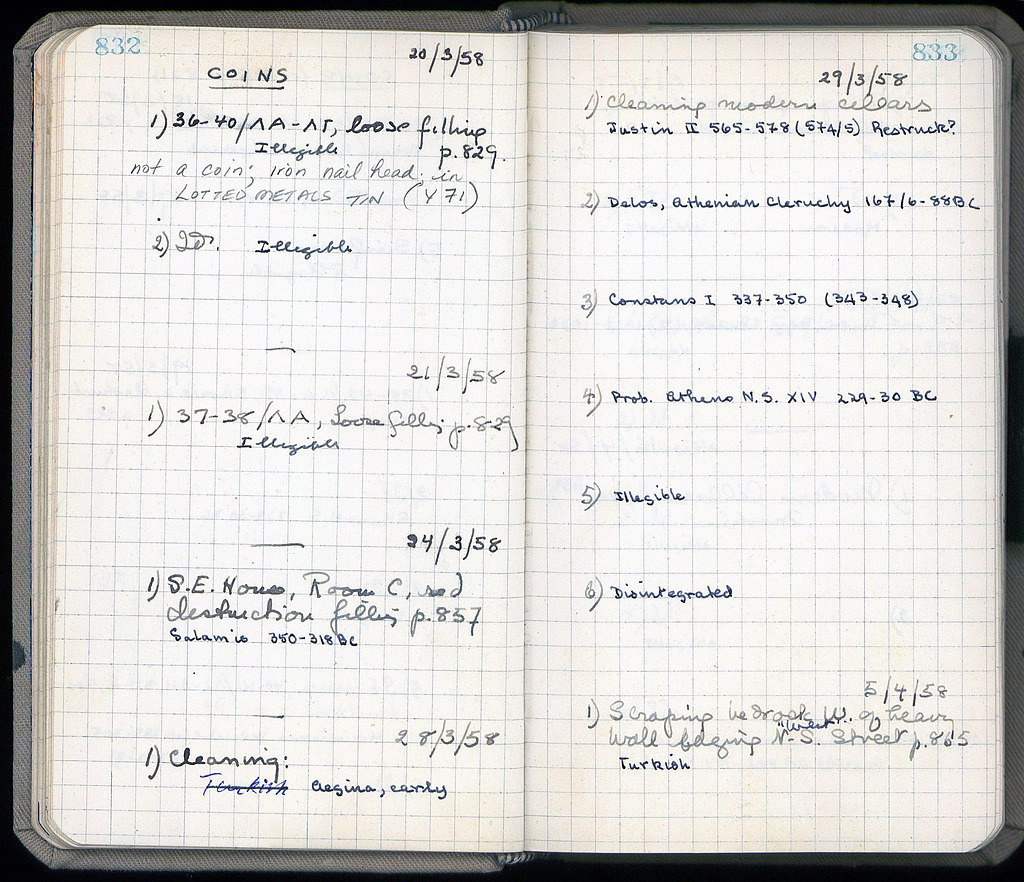 832
20/3/58
COINS
1) 36-40/ΛΑ-ΛΓ, loose filling
Illegible p.829.
not a coin; iron nail head; in
LOTTED METALS TIN (Y 71)
2) Id. Illegible
21/3/58
1) 37-38/ΛΑ, Loose filling p.829
Illegible
24/3/58
1) S.E. House, Room C, red
destruction filling p.857
Salamis 350-318 BC
28/3/58
1) Cleaning:
Turkish Aegina, early
833
29/3/58
1) Cleaning modern cellars
Justin II 565-578 (574/5) Restruck?
2) Delos, Athenian Cleruchy 167/6-88 BC
3) Constans I 337-350 (343-348)
4) Prob. Athens N.S. XIV 229-30 BC
5) Illegible
6) Disintegrated
5/4/58
1) Scraping bedrock W. of heavy
wall edging "West" N-S. Street p.865
Turkish